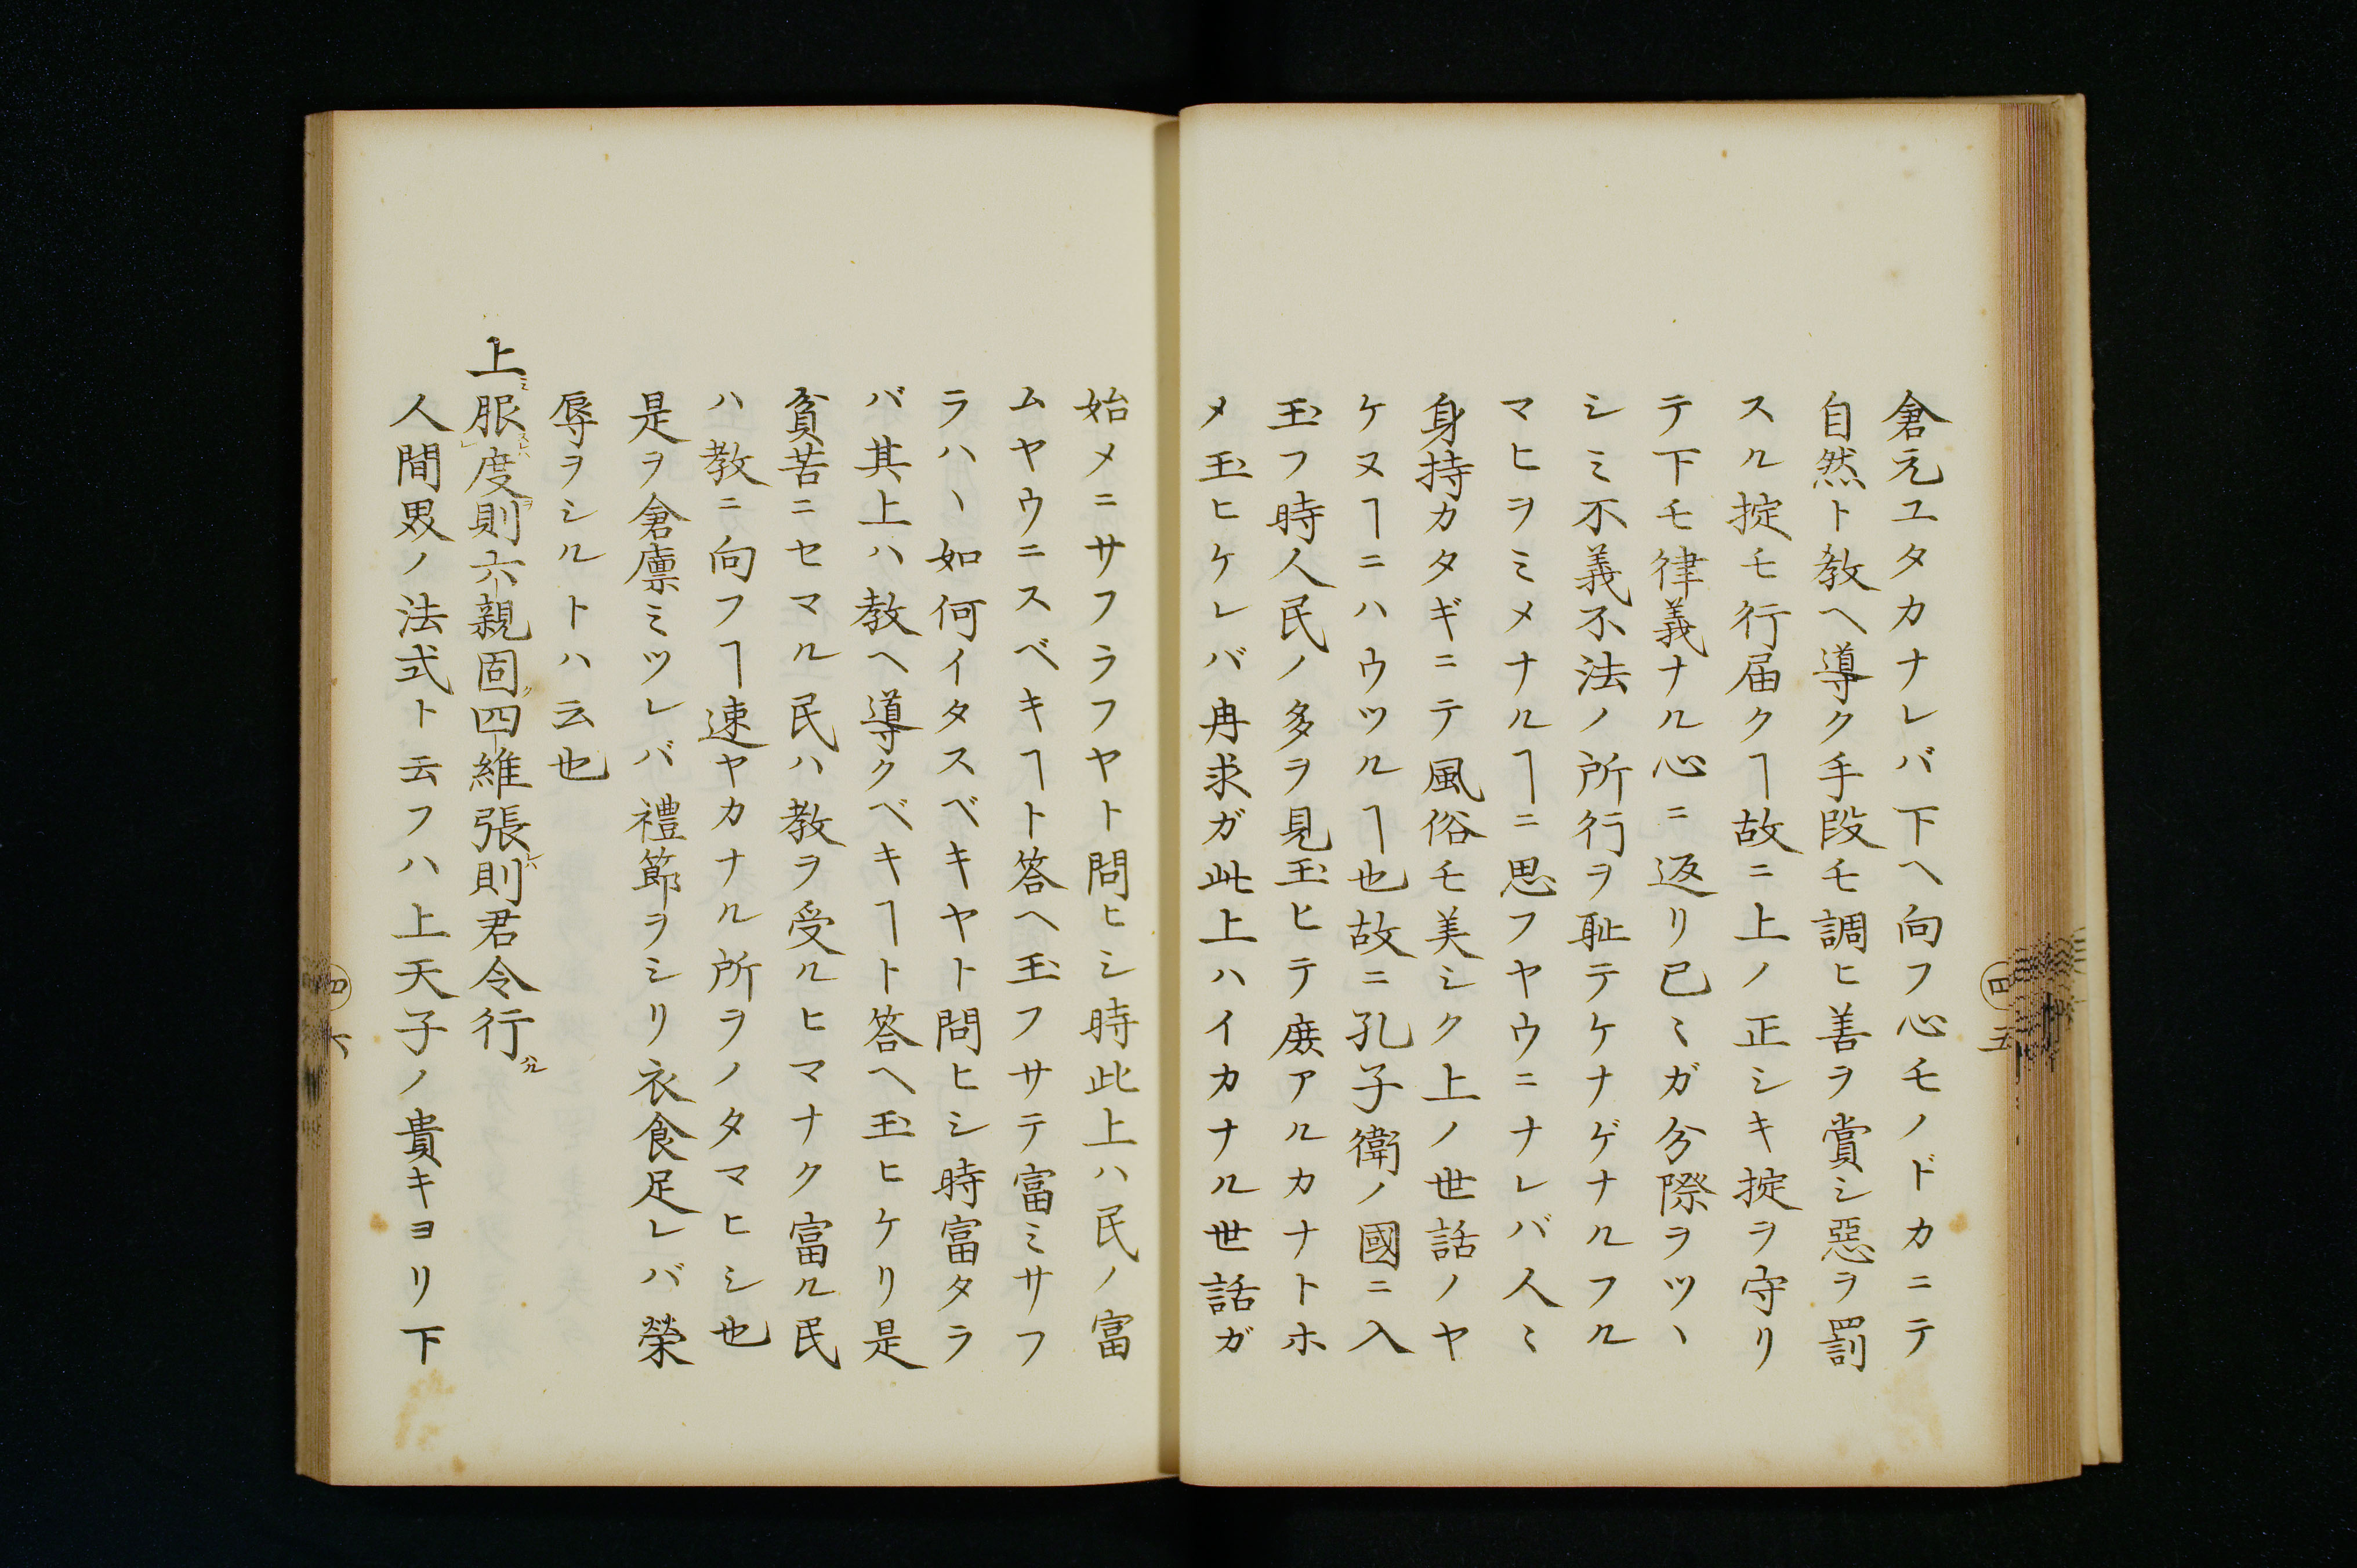 倉元ユタカナレバ下ヘ向フ心モノドカニテ
自然ト教ヘ導ク手段モ調ヒ善ヲ賞シ惡ヲ罰
スル掟モ行届クヿ故ニ上ノ正シキ掟ヲ守リ
テ下モ律義ナル心ニ返リ已ミガ分際ヲツヽ
シミ不義不法ノ所行ヲ恥テケナゲナルフル
マヒヲミメナルヿニ思フヤウニナレバ人ミ
身持カタギニテ風俗モ美シク上ノ世話ノヤ
ケヌヿニハウツルヿ也故ニ孔子衛ノ國ニ入
玉フ時人民ノ多ヲ見玉ヒテ庶アルカナトホ
メ玉ヒケレバ冉求ガ此上ハイカナル世話ガ
始メニサフラフヤト問ヒシ時此上ハ民ノ富
ムヤウニスベキヿト答ヘ玉フサテ富ミサフ
ラハヽ如何イタスベキヤト問ヒシ時富タラ
バ其上ハ教ヘ導クベキヿト答ヘ玉ヒケリ是
貧苦ニセマル民ハ教ヲ受ルヒマナク富ル民
ハ教ニ向フヿ速ヤカナル所ヲノタマヒシ也
是ヲ倉廩ミツレバ禮節ヲシリ衣食足レバ榮
辱ヲシルトハ云也
上服度則六親固四維張則君令行
人間界ノ法式ト云フハ上天子ノ貴キヨリ下
四 五
四 六